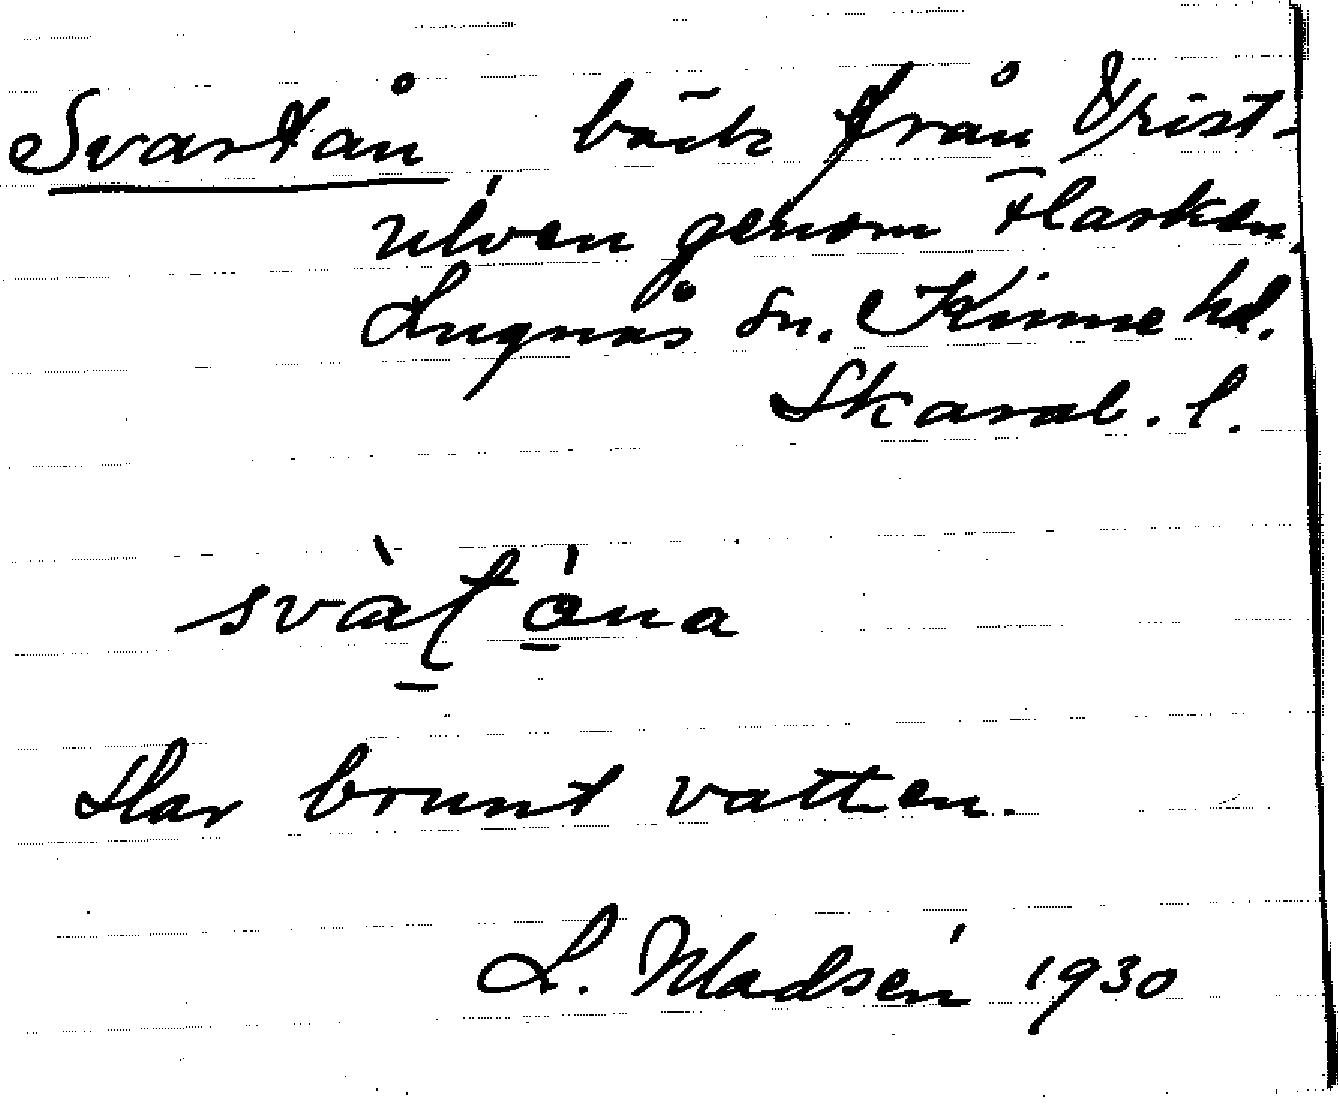 Svartån bäck från Krist-
ulven genom Flasken.
Lugnås sn. Kinne hd.
Skarab. l.
svàt ǻna
Har brunt vatten.
L. Madsén 1930